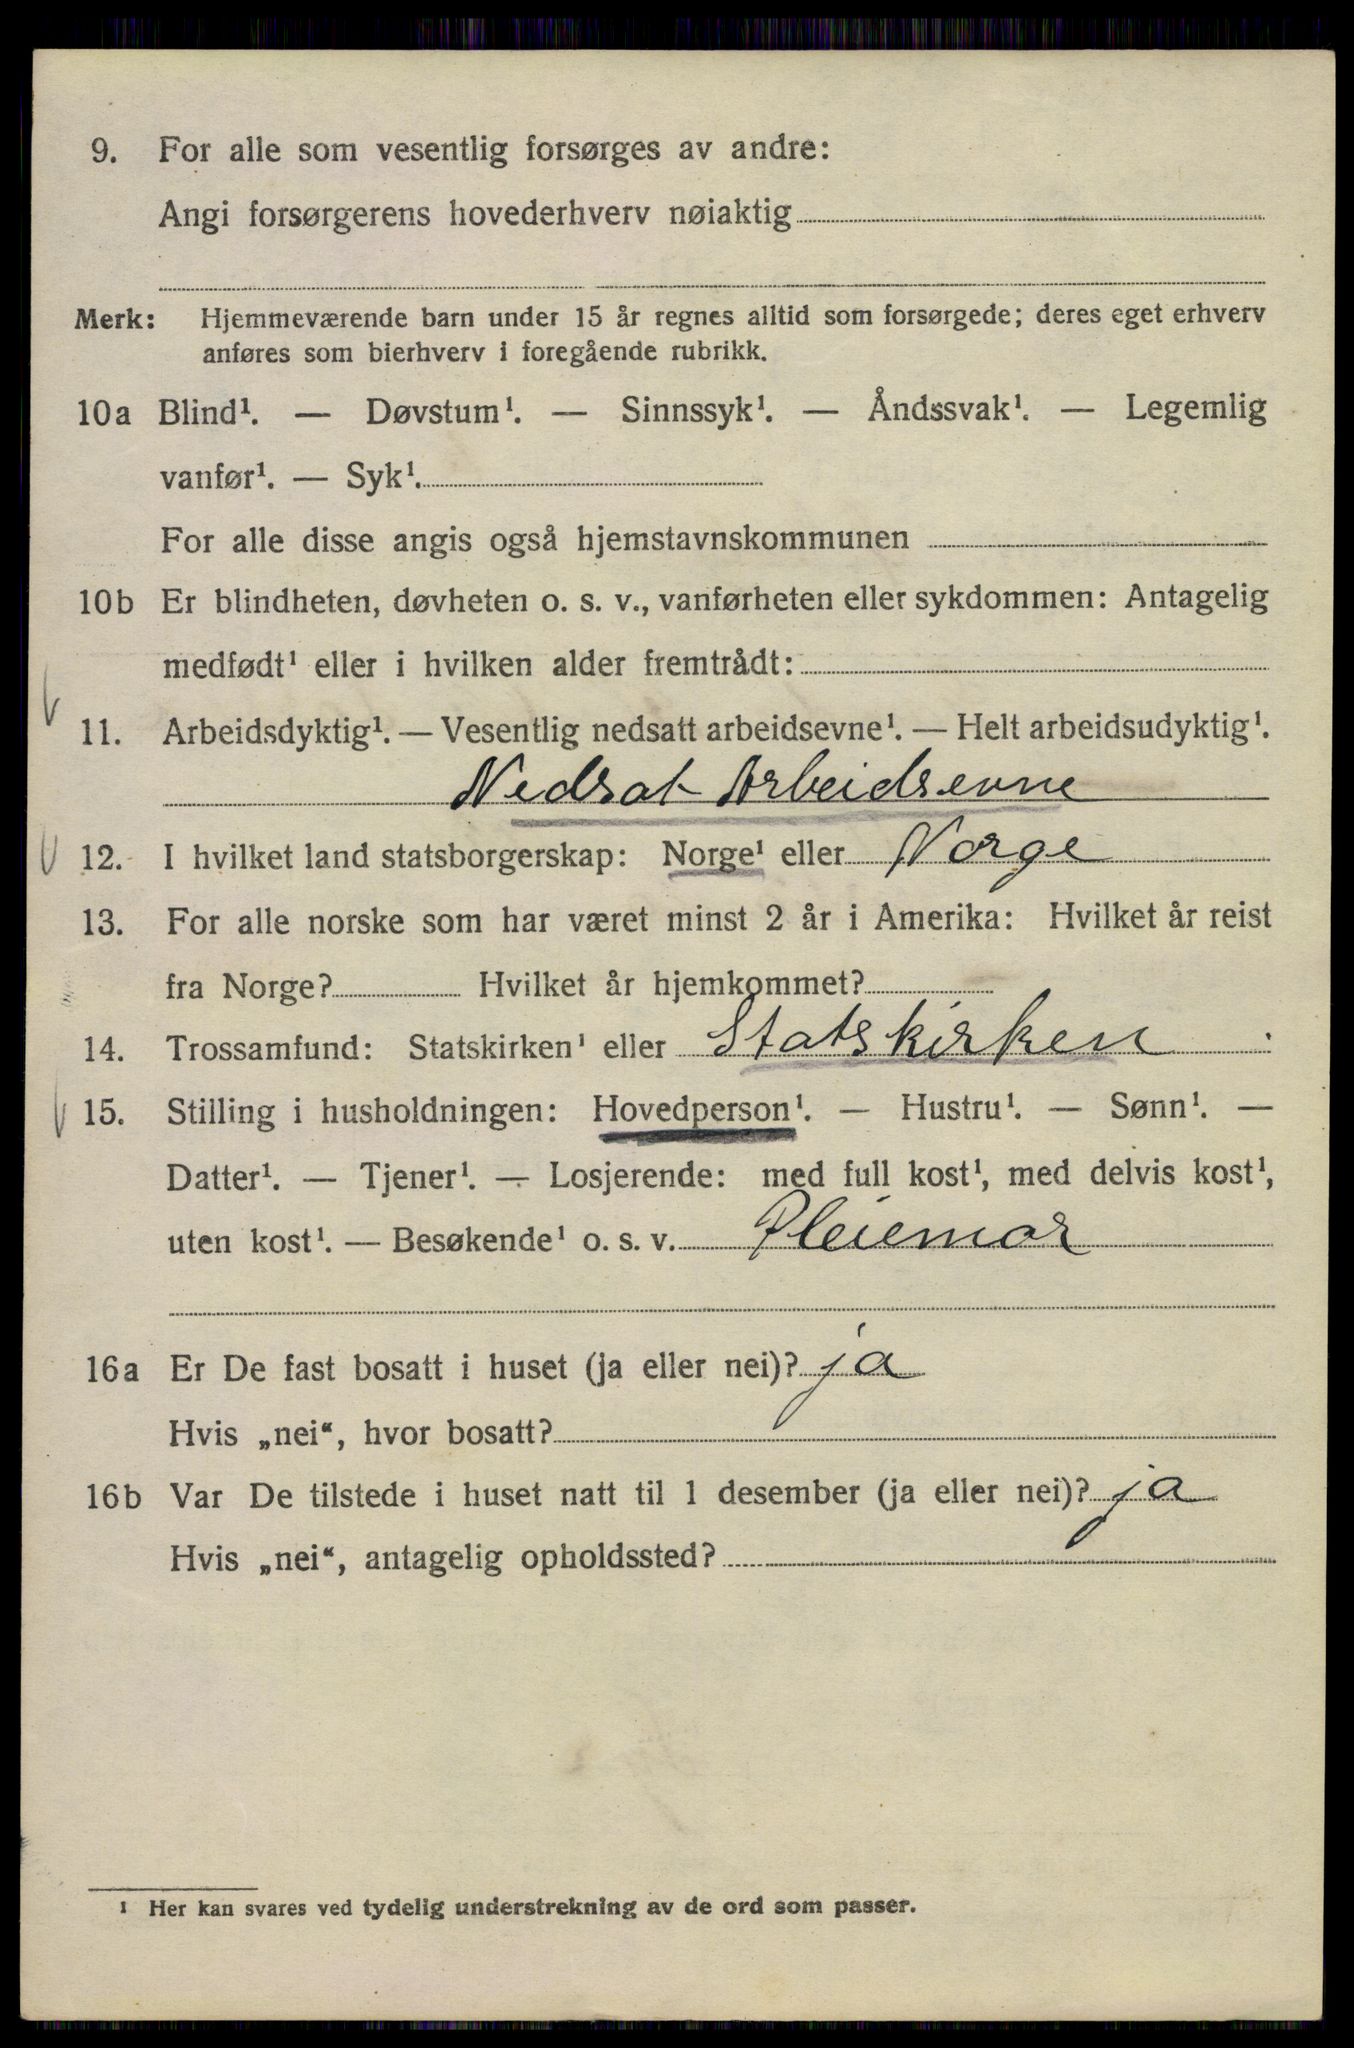 9. For alle som vesentlig forsørges av andre:
Angi forsørgerens hovederhverv nøiaktig
Merk: Hjemmeværende barn under 15 år regnes alltid som forsørgede; deres eget erhverv
anføres som bierhverv i foregående rubrikk.
10a Blind¹. — Døvstum¹. — Sinnssyk¹. — Åndssvak¹. — Legemlig
vanfør¹. — Syk¹.
For alle disse angis også hjemstavnskommunen
10b Er blindheten, døvheten o. s. v., vanførheten eller sykdommen: Antagelig
medfødt¹ eller i hvilken alder fremtrådt:
11. Arbeidsdyktig¹. — Vesentlig nedsatt arbeidsevne¹. — Helt arbeidsudyktig¹.
Nedsat Arbeidsevne
12. I hvilket land statsborgerskap: Norge¹ eller Norge
13. For alle norske som har været minst 2 år i Amerika: Hvilket år reist
fra Norge? Hvilket år hjemkommet?
14. Trossamfund: Statskirken¹ eller Statskirken
15. Stilling i husholdningen: Hovedperson¹. — Hustru¹. — Sønn¹. —
Datter¹. — Tjener¹. — Losjerende: med full kost¹, med delvis kost¹,
uten kost¹. — Besøkende¹ o. s. v. Pleiemor
16a Er De fast bosatt i huset (ja eller nei)? ja
Hvis „nei“, hvor bosatt?
16b Var De tilstede i huset natt til 1 desember (ja eller nei)? ja
Hvis „nei“, antagelig opholdssted?
¹ Her kan svares ved tydelig understrekning av de ord som passer.